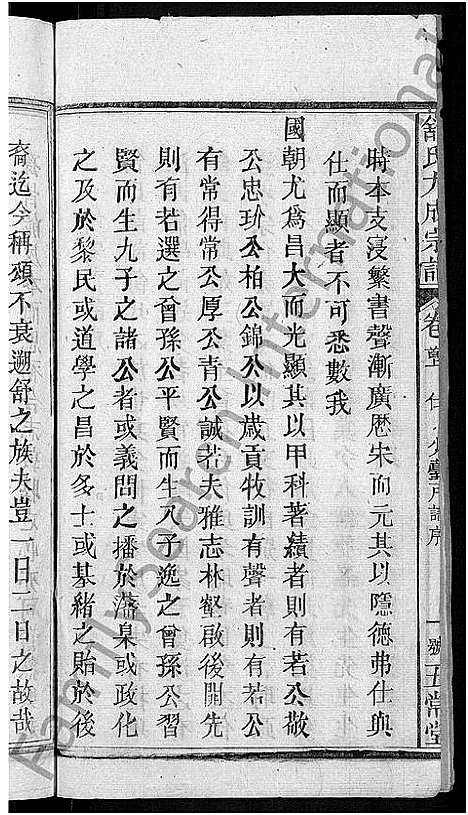 舒氏大成宗譜 卷首
一號 五常堂
時本支寖繁書聲漸廣歷宋而元其以隱德弗仕與
仕而顯者不可悉數我
國朝尤為昌大而光顯其以甲科著績者則有若公敬
公忠玠公柏公錦公以歲貢牧訓有聲者則有若公
有常得常公厚公青公誠若夫雅志林壑啟後開先
則有若選之曾孫公平賢而生八子逸之曾孫公習
賢而生九子之諸公者或義問之播於藩臬或政化
之及於黎民或道學之昌於多士或基緒之貽於後
裔迄今稱頌不衰遡舒之族夫豈一日二日之故哉
Family Search International